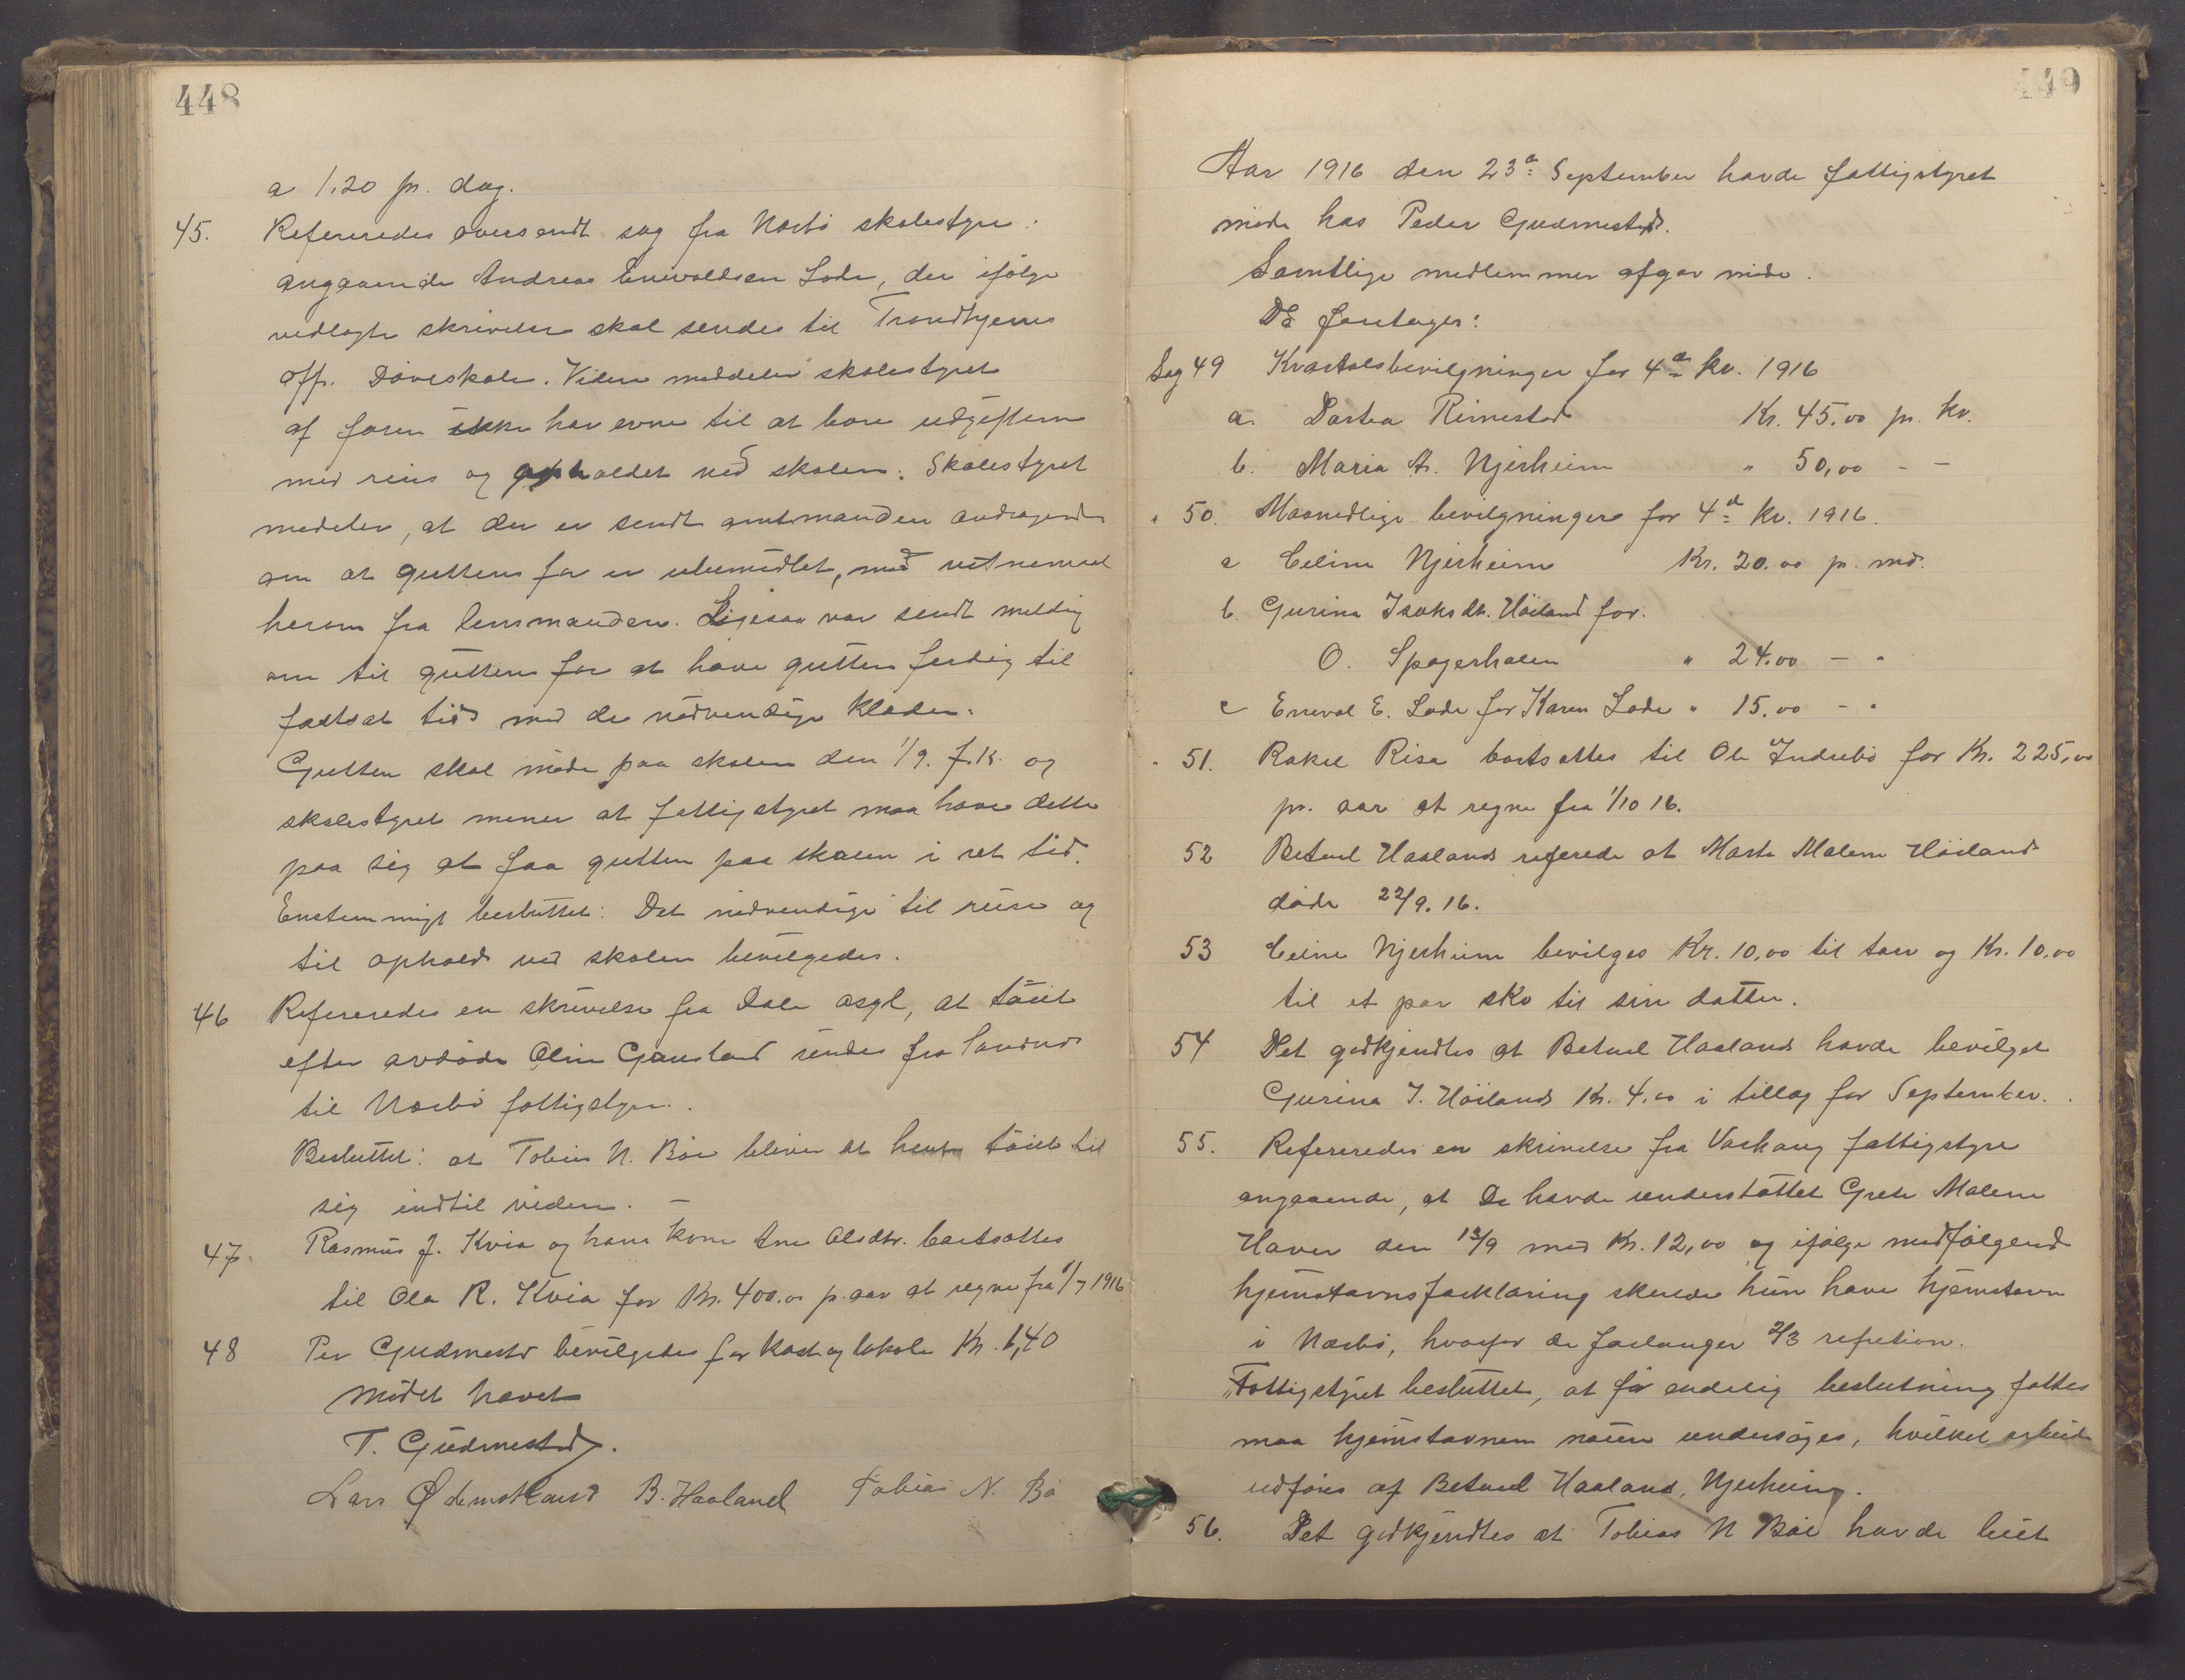 448
a 1,20 pr. dag.
45. Refereredes oversendt sag fra Nærbö skolestyre:
angaaende Andreas Enevoldsen Lode, der ifölge
vedlagte skrivelse skal sendes til Trondhjems
off. Döveskole. Videre meddeler skolestyret
af faren ikke har evne til at bære udgifterne
med reise og opholdet ved skolen. Skolestyret
medeler, at der er sendt amtmanden andragende
om at guttens far er ubemidlet, med vitnemaal
herom fra lensmanden. Ligesaa var sendt melding
om til guttens far at have gutten ferdig til
fastsat tid med de nödvendige klæder.
Gutten skal möde paa skolen den 1/9. f.k. og
skolestyret mener at fattigstyret maa have dette
paa sig at faa gutten paa skolen i ret tid.
Enstemmigt besluttet: Det nödvendige til reise og
til ophold ved skolen bevilgedes.
46 Refereredes en skrivelse fra Dale asyl, at töiet
efter avdöde Oline Gausland sendes fra Sandnes
til Nærbö fattigstyre.
Besluttet: at Tobias N. Böe bliver at hente töiet til
sig indtil videre. –
47. Rasmus J. Kvia og hans kone Ane Olsdtr. bortsættes
til Ola R. Kvia for Kr. 400.00 p. aar at regne fra 1/7 1916
48 Per Gudmestad bevilgedes for kost og lokale Kr. 6,40
Mödet hævet
T. Gudmestad.
Lars Ödemotland B. Haaland Tobias N. Bö
449
Aar 1916 den 23d September havde fattigstyret
möde hos Peder Gudmestad.
Samtlige medlemmer afgav möde.
Da foretages:
Sag 49 Kvartalsbevilgninger for 4de kv. 1916
a. Dortea Rimestad Kr. 45.00 pr. kv.
b. Maria A. Njerheim " 50,00 - -
" 50. Maanedlige bevilgninger for 4de kv. 1916.
a Celine Njerheim Kr. 20.00 pr. md.
b. Gurina Isaksdtr. Höiland for.
O. Spagerhalen " 24.00 – "
c Enevol E. Lode for Karen Lode " 15.00 - "
" 51. Rakel Risa bortsættes til Ole Indrebö for Kr. 225,00
pr. aar at regne fra 1/10 16.
52 Betuel Haaland referede at Marta Malene Höiland
döde 22/9. 16.
53 Celine Njerheim bevilges Kr. 10,00 til torv og Kr. 10.00
til et par sko til sin datter.
54 Det godkjendtes at Betuel Haaland havde bevilget
Gurina I. Höiland Kr. 4.00 i tillæg for September.
55. Refereredes en skrivelse fra Varhaug fattigstyre
angaaende, at De havde understöttet Grete Malene
Haver den 13/9 med Kr. 12,00 og ifölge medfölgende
hjemstavnsforklaring skulde hun have hjemstavn
i Nærbö, hvorfor de forlanger 2/3 refution.
"Fattigstyret besluttet, at för endelig beslutning fattes
maa hjemstavnen nöiere undersöges, hvilket arbeide
udföres af Betuel Haaland, Njerheim.
56. Det godkjendtes at Tobias N Böe havde leiet